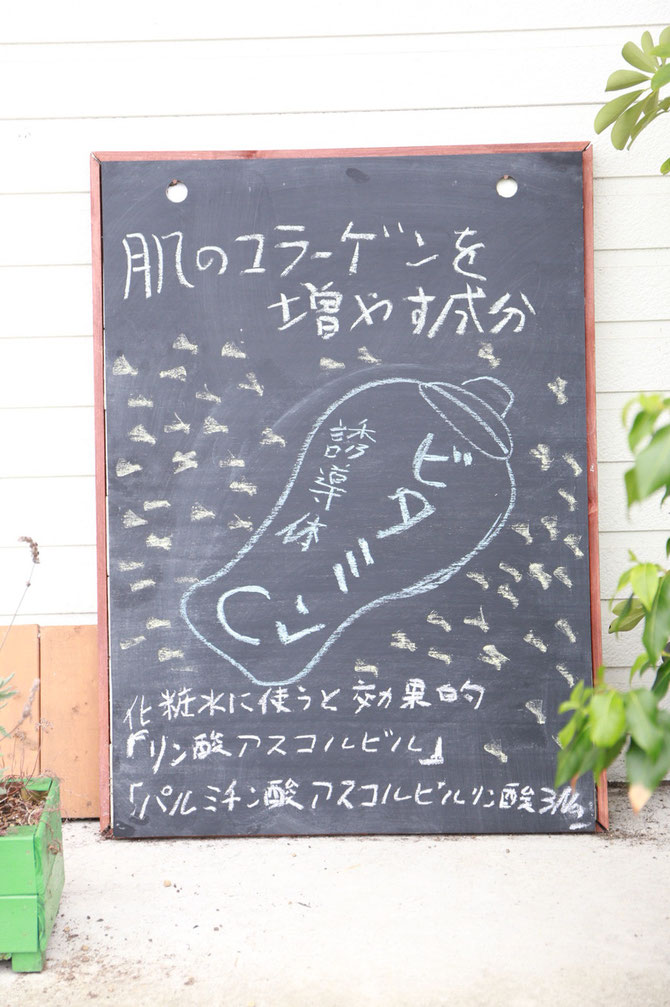 肌のコラーゲンを
増やす成分
ビタミンC
誘導体
化粧水に使うと効果的
「リン酸アスコルビル」
「パルミチン酸アスコルビルリン酸3Na